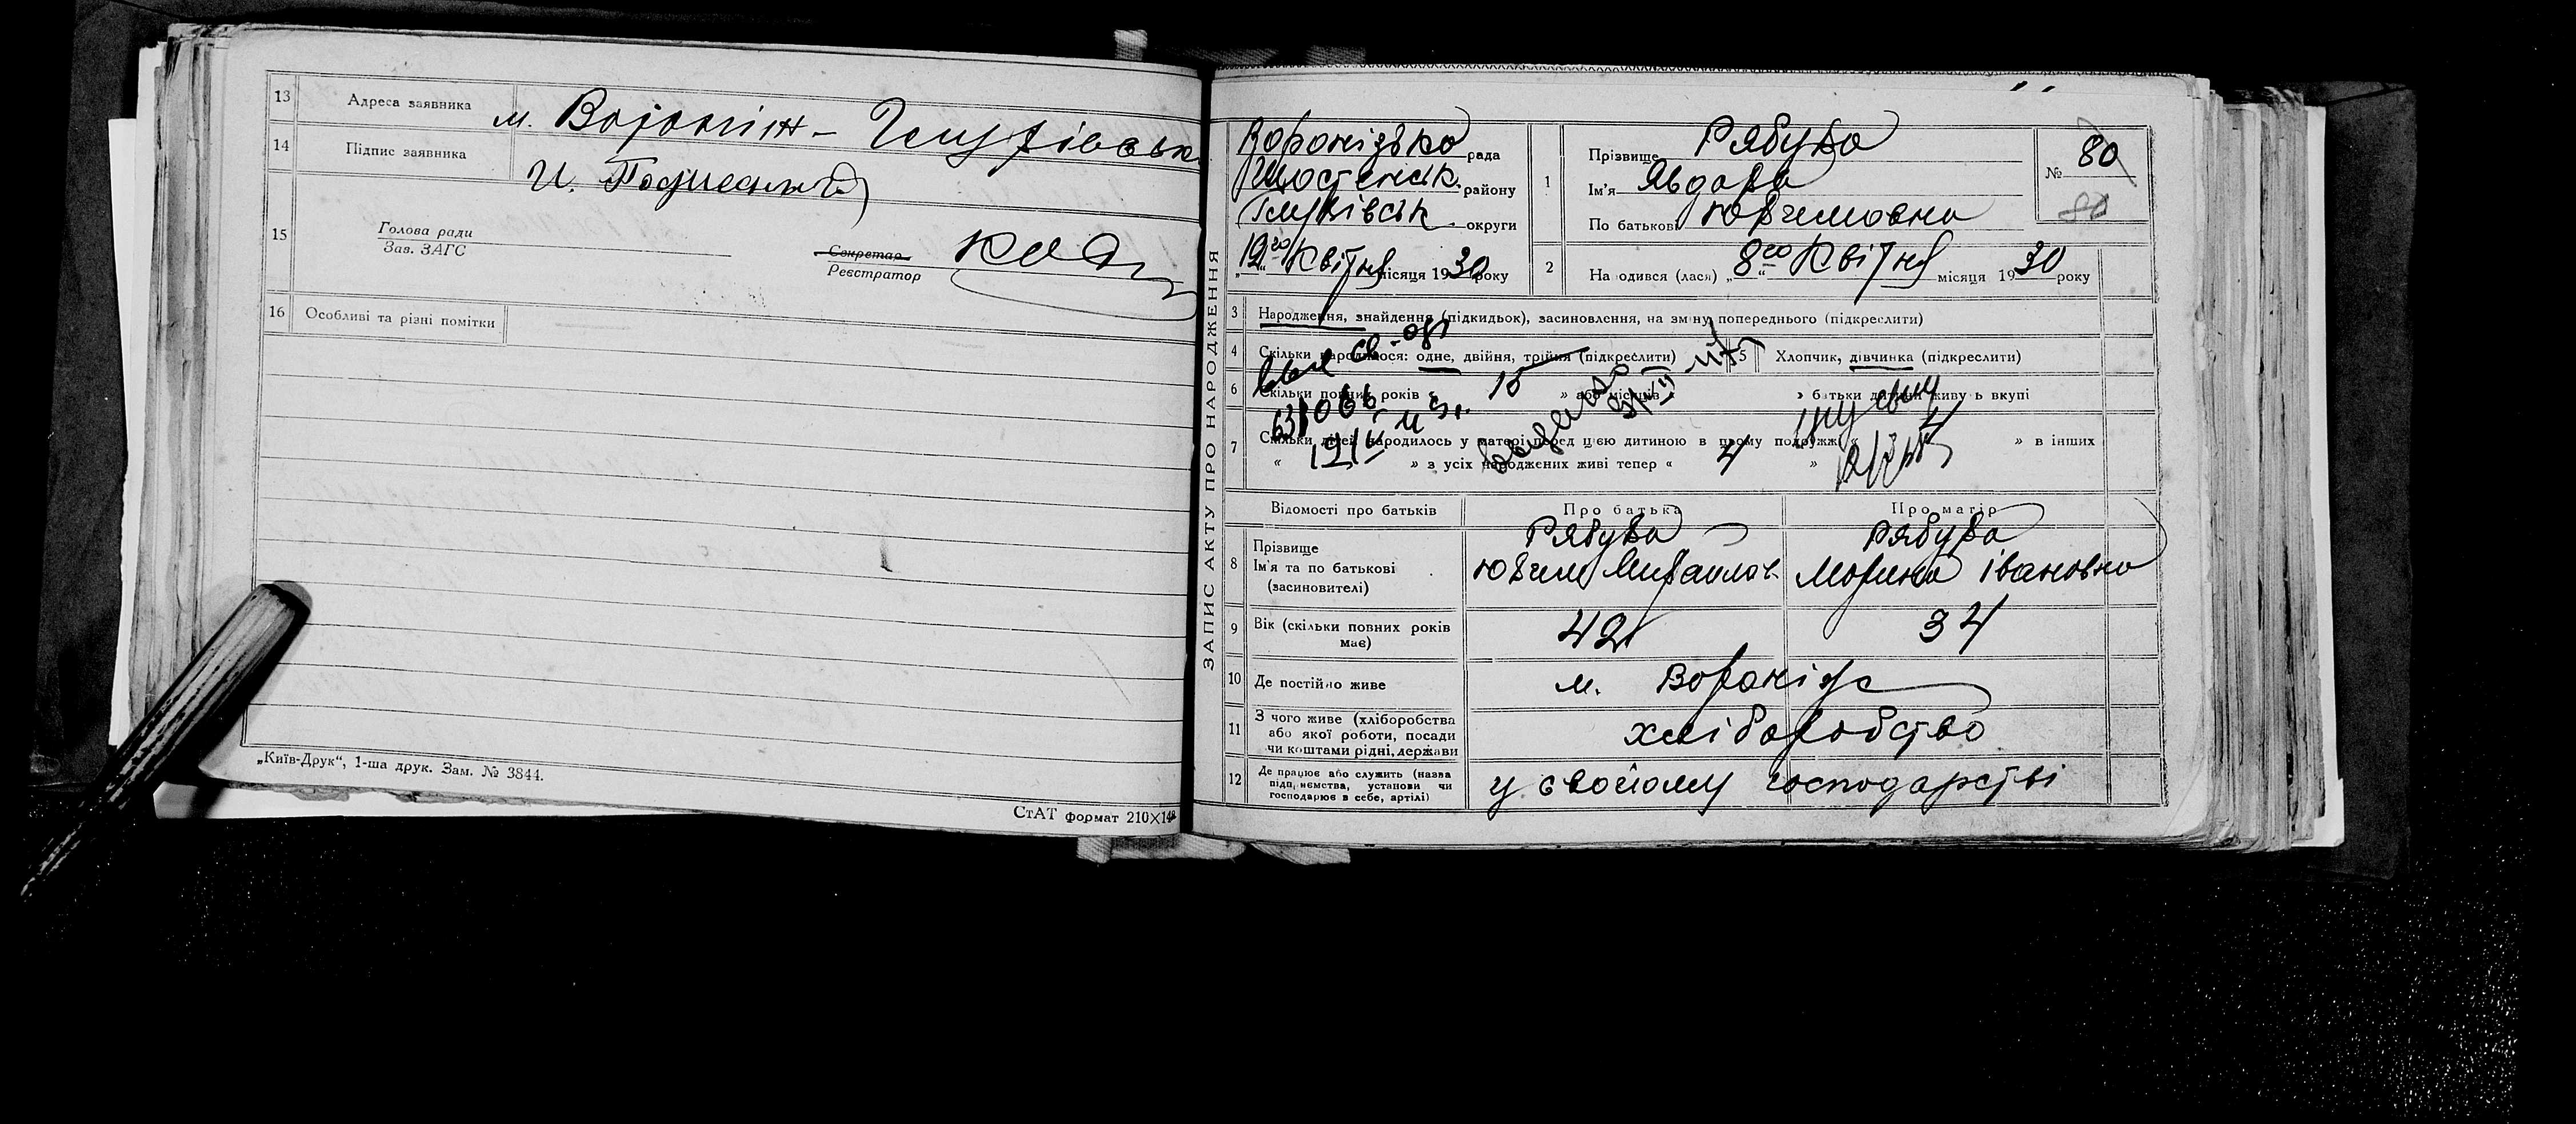 13 Адреса заявника м. Вороніж – Глухівськ
14 Підпис заявника И.
15 Голова ради
Зав. ЗАГС
Секретар
Реєстратор
16 Особливі та різні помітки
„Київ-Друк“, 1-ша друк. Зам. № 3844.
СтАТ формат 210×148
ЗАПИС АКТУ ПРО НАРОДЖЕННЯ
Вороնізька рада
Шостенськ. району
Глухівськ округи
„19го“ Квітня місяця 1930 року
1 Прізвище Рябуха
Ім'я Явдоха
По батькові Юхимовна
№ 80
80
2 Народився (лася) „8го“ Квітня місяця 1930 року
3 Народження, знайдення (підкидьок), засиновлення, на зміну попереднього (підкреслити)
4 Скільки народилося: одне, двійня, трійня (підкреслити) 5 Хлопчик, дівчинка (підкреслити)
6 Скільки повних років » або місяців « » батьки дитини живуть вкупі
7 Скільки дітей народилось у матері перед цією дитиною в цьому подружжі « 4 » в інших
« » з усіх народжених живі тепер « 4 »
Відомості про батьків Про батька Про матір
8 Прізвище Рябуха Рябуха
Ім'я та по батькові Юхим Михайлов. Морина Івановна
(засиновителі)
9 Вік (скільки повних років має) 42 34
10 Де постійно живе м. Вороніж
11 З чого живе (хліборобства
або якої роботи, посади хліборобство
чи коштами рідні, держави
12 Де працює або служить (назва
підприємства, установи чи у свойому господарстві
господарює в себе, артілі)